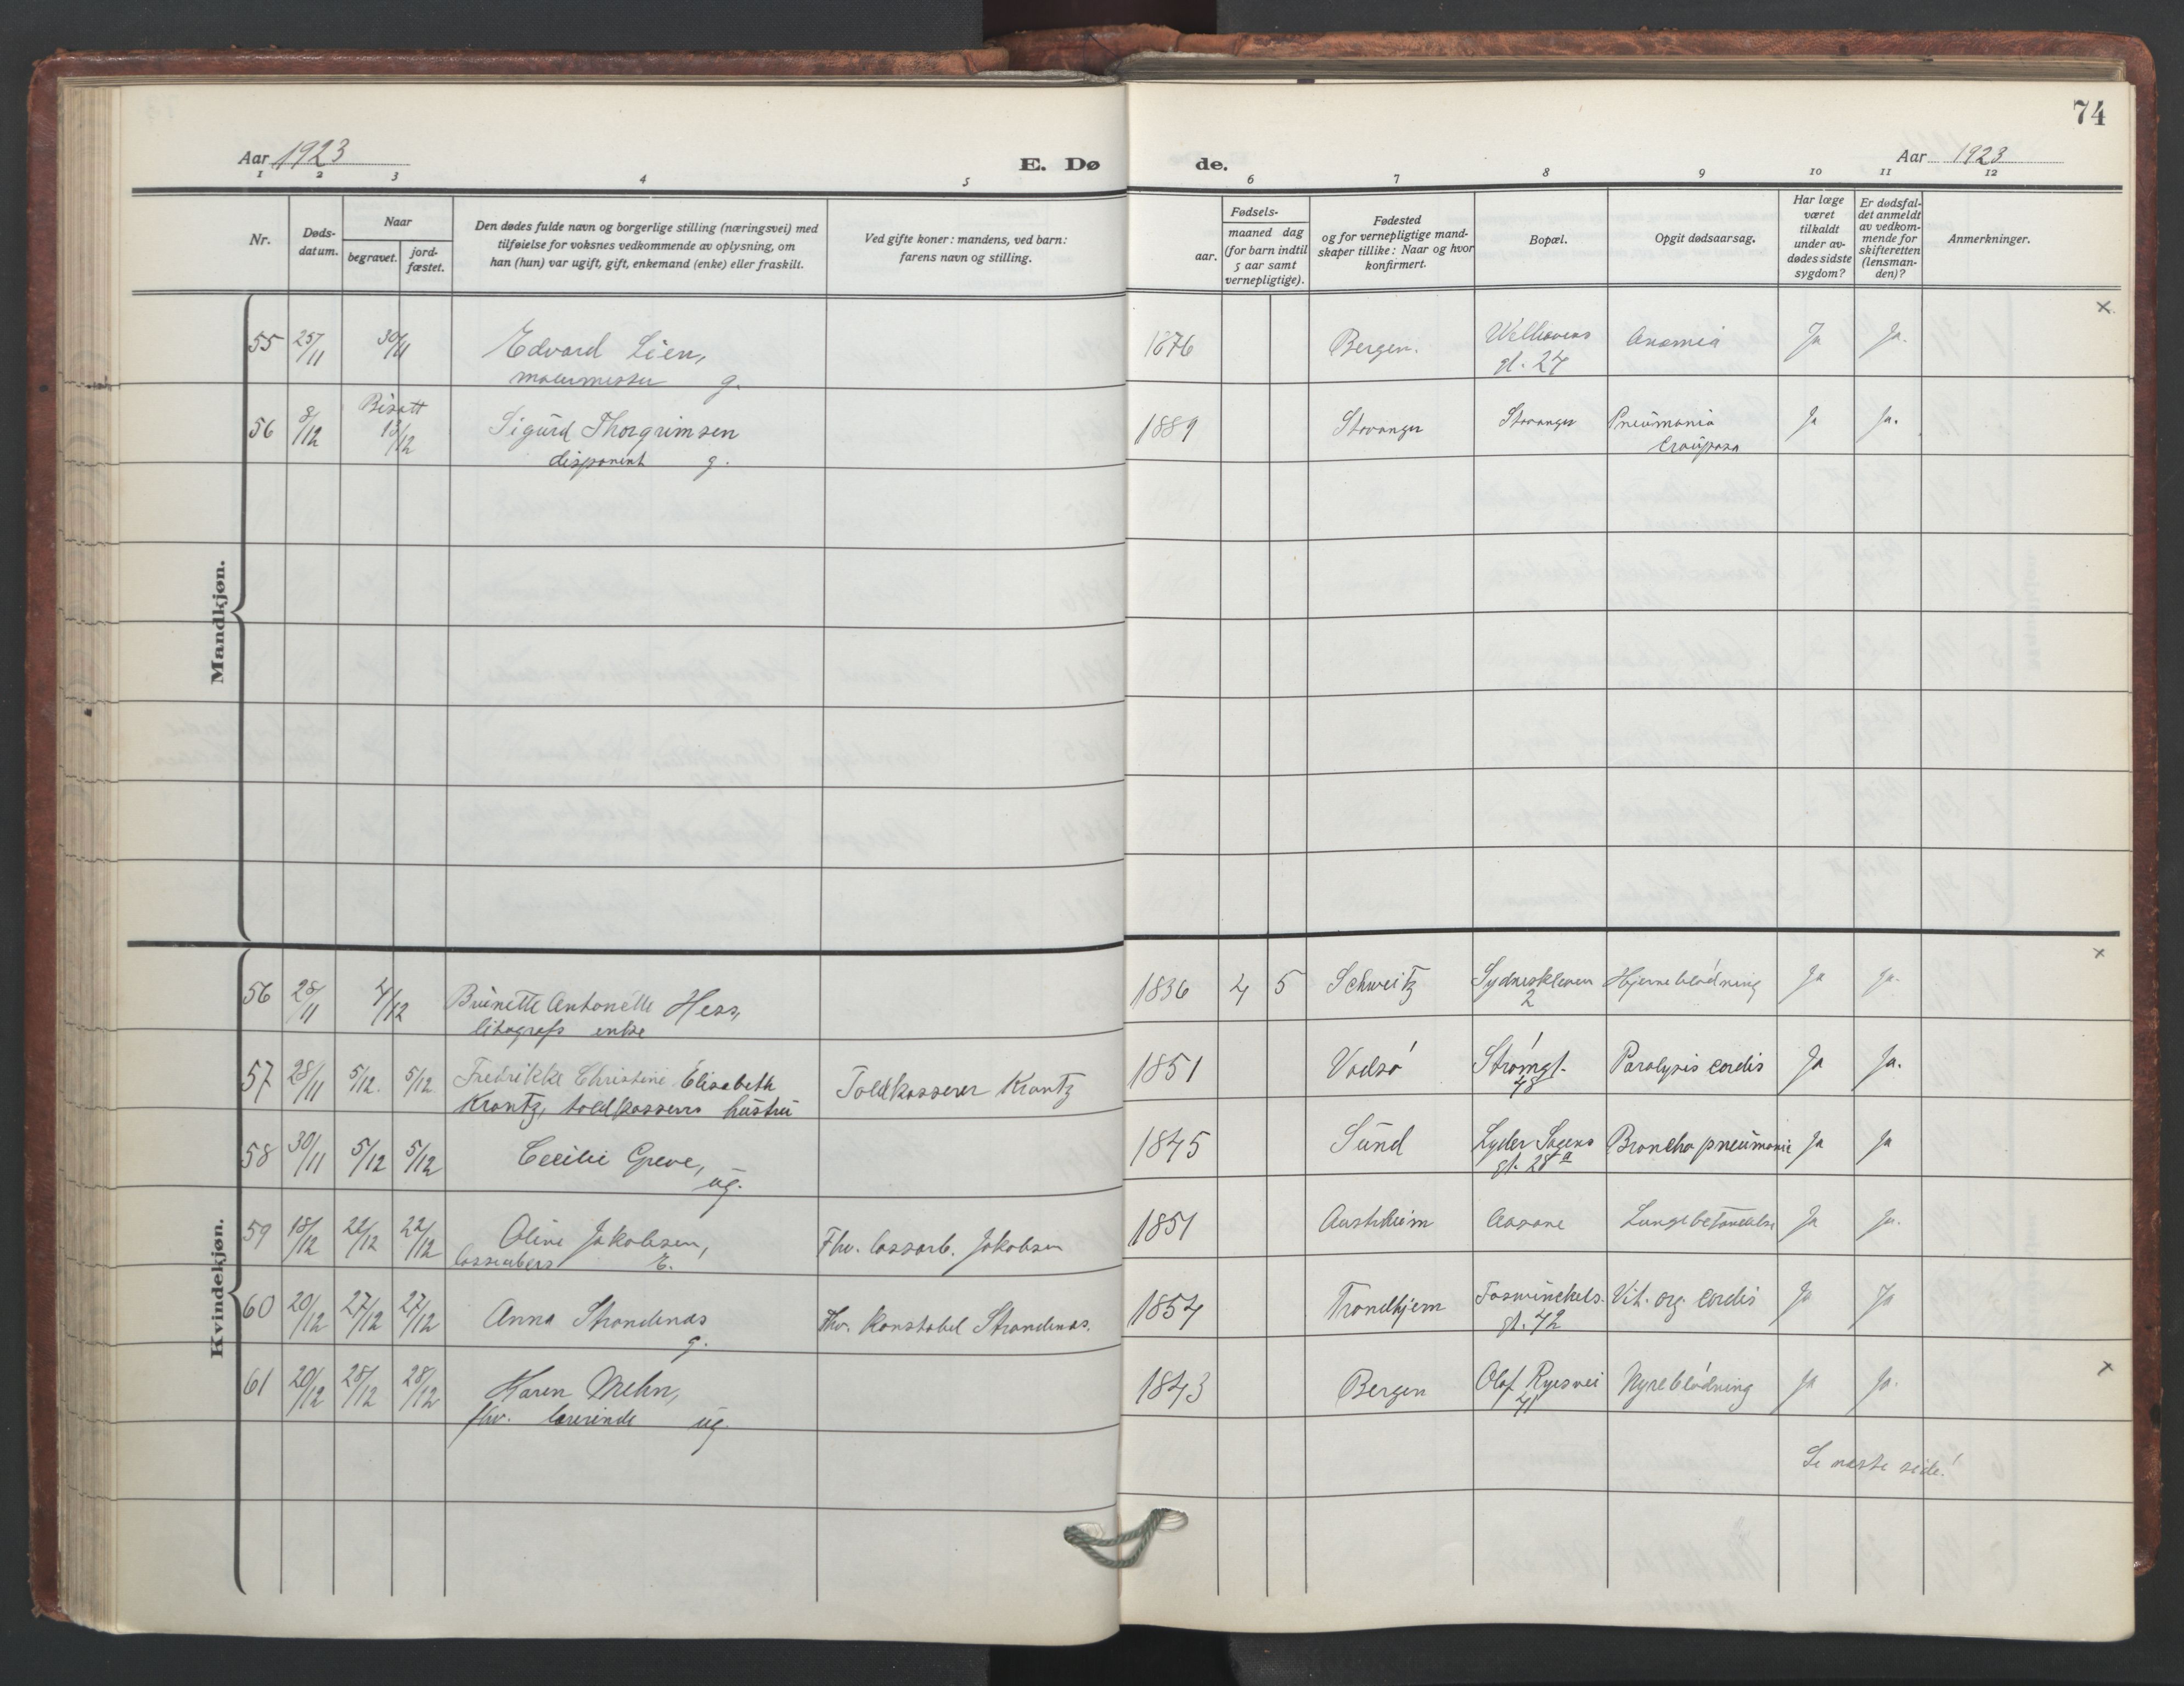 74
Aar 1923
E. Dø de.
Aar 1923
1 2 3 4 5 6 7 8 9 10 11 12
Nr.
Døds-
datum.
Naar
begravet.
jord-
fæstet.
Den dødes fulde navn og borgerlige stilling (næringsvei) med
tilføielse for voksnes vedkommende av oplysning, om
han (hun) var ugift, gift, enkemand (enke) eller fraskilt.
Ved gifte koner: mandens, ved barn:
farens navn og stilling.
aar.
Fødsels-
maaned dag
(for barn indtil
5 aar samt
vernepligtige).
Fødested
og for vernepligtige mand-
skaper tillike: Naar og hvor
konfirmert.
Bopæl.
Opgit dødsaarsag.
Har læge
været
tilkaldt
under av-
dødes sidste
sygdom?
Er dødsfal-
det anmeldt
av vedkom-
mende for
skifteretten
(lensman-
den)?
Anmerkninger.
Mandkjøn.
55 25/11 30/11 Edvard Lien, 1876 Bergen. Welhavens Anæmia Ja Ja. x
malermester g. gt. 24
Bisatt
56 8/12 13/12 Sigurd Thorgrimsen 1889 Stavanger Stavanger Pneumonia Ja Ja.
disponent g. crouposa
Kvindekjøn.
56 28/11 4/12 Brünette Antonette Hess, 1836 4 5 Schweitz Sydneskleven Hjerneblødning Ja Ja. x
litografs enke 2
57 28/11 5/12. 5/12. Fredrikke Christine Elisabeth Toldkasserer Krantz 1851 Vadsø Strømgt. Paralysis cordis Ja Ja.
Krantz, toldkasserers hustru 48
58 30/11 5/12 5/12 Cecilie Greve, 1845 Sund Lyder Sagens Broncho pneumonie Ja Ja
ug. gt. 28a
59 18/12 22/12 22/12 Oline Jakobsen, Fhv. lossarb. Jakobsen 1851 Austrheim Aasane Lungebetændelse Ja Ja.
E.
60 20/12 27/12 27/12 Anna Strandenæs Fhv. konstabel Strandenæs. 1854 Trondhjem Foswinckels. Vit. org. cordis Ja Ja
g. gt. 42
61 20/12 28/12 28/12 Karen Mehn, 1843 Bergen Olaf Ryesvei Nyreblødning Ja Ja. x
fhv. lærerinde ug.
Se næste side!